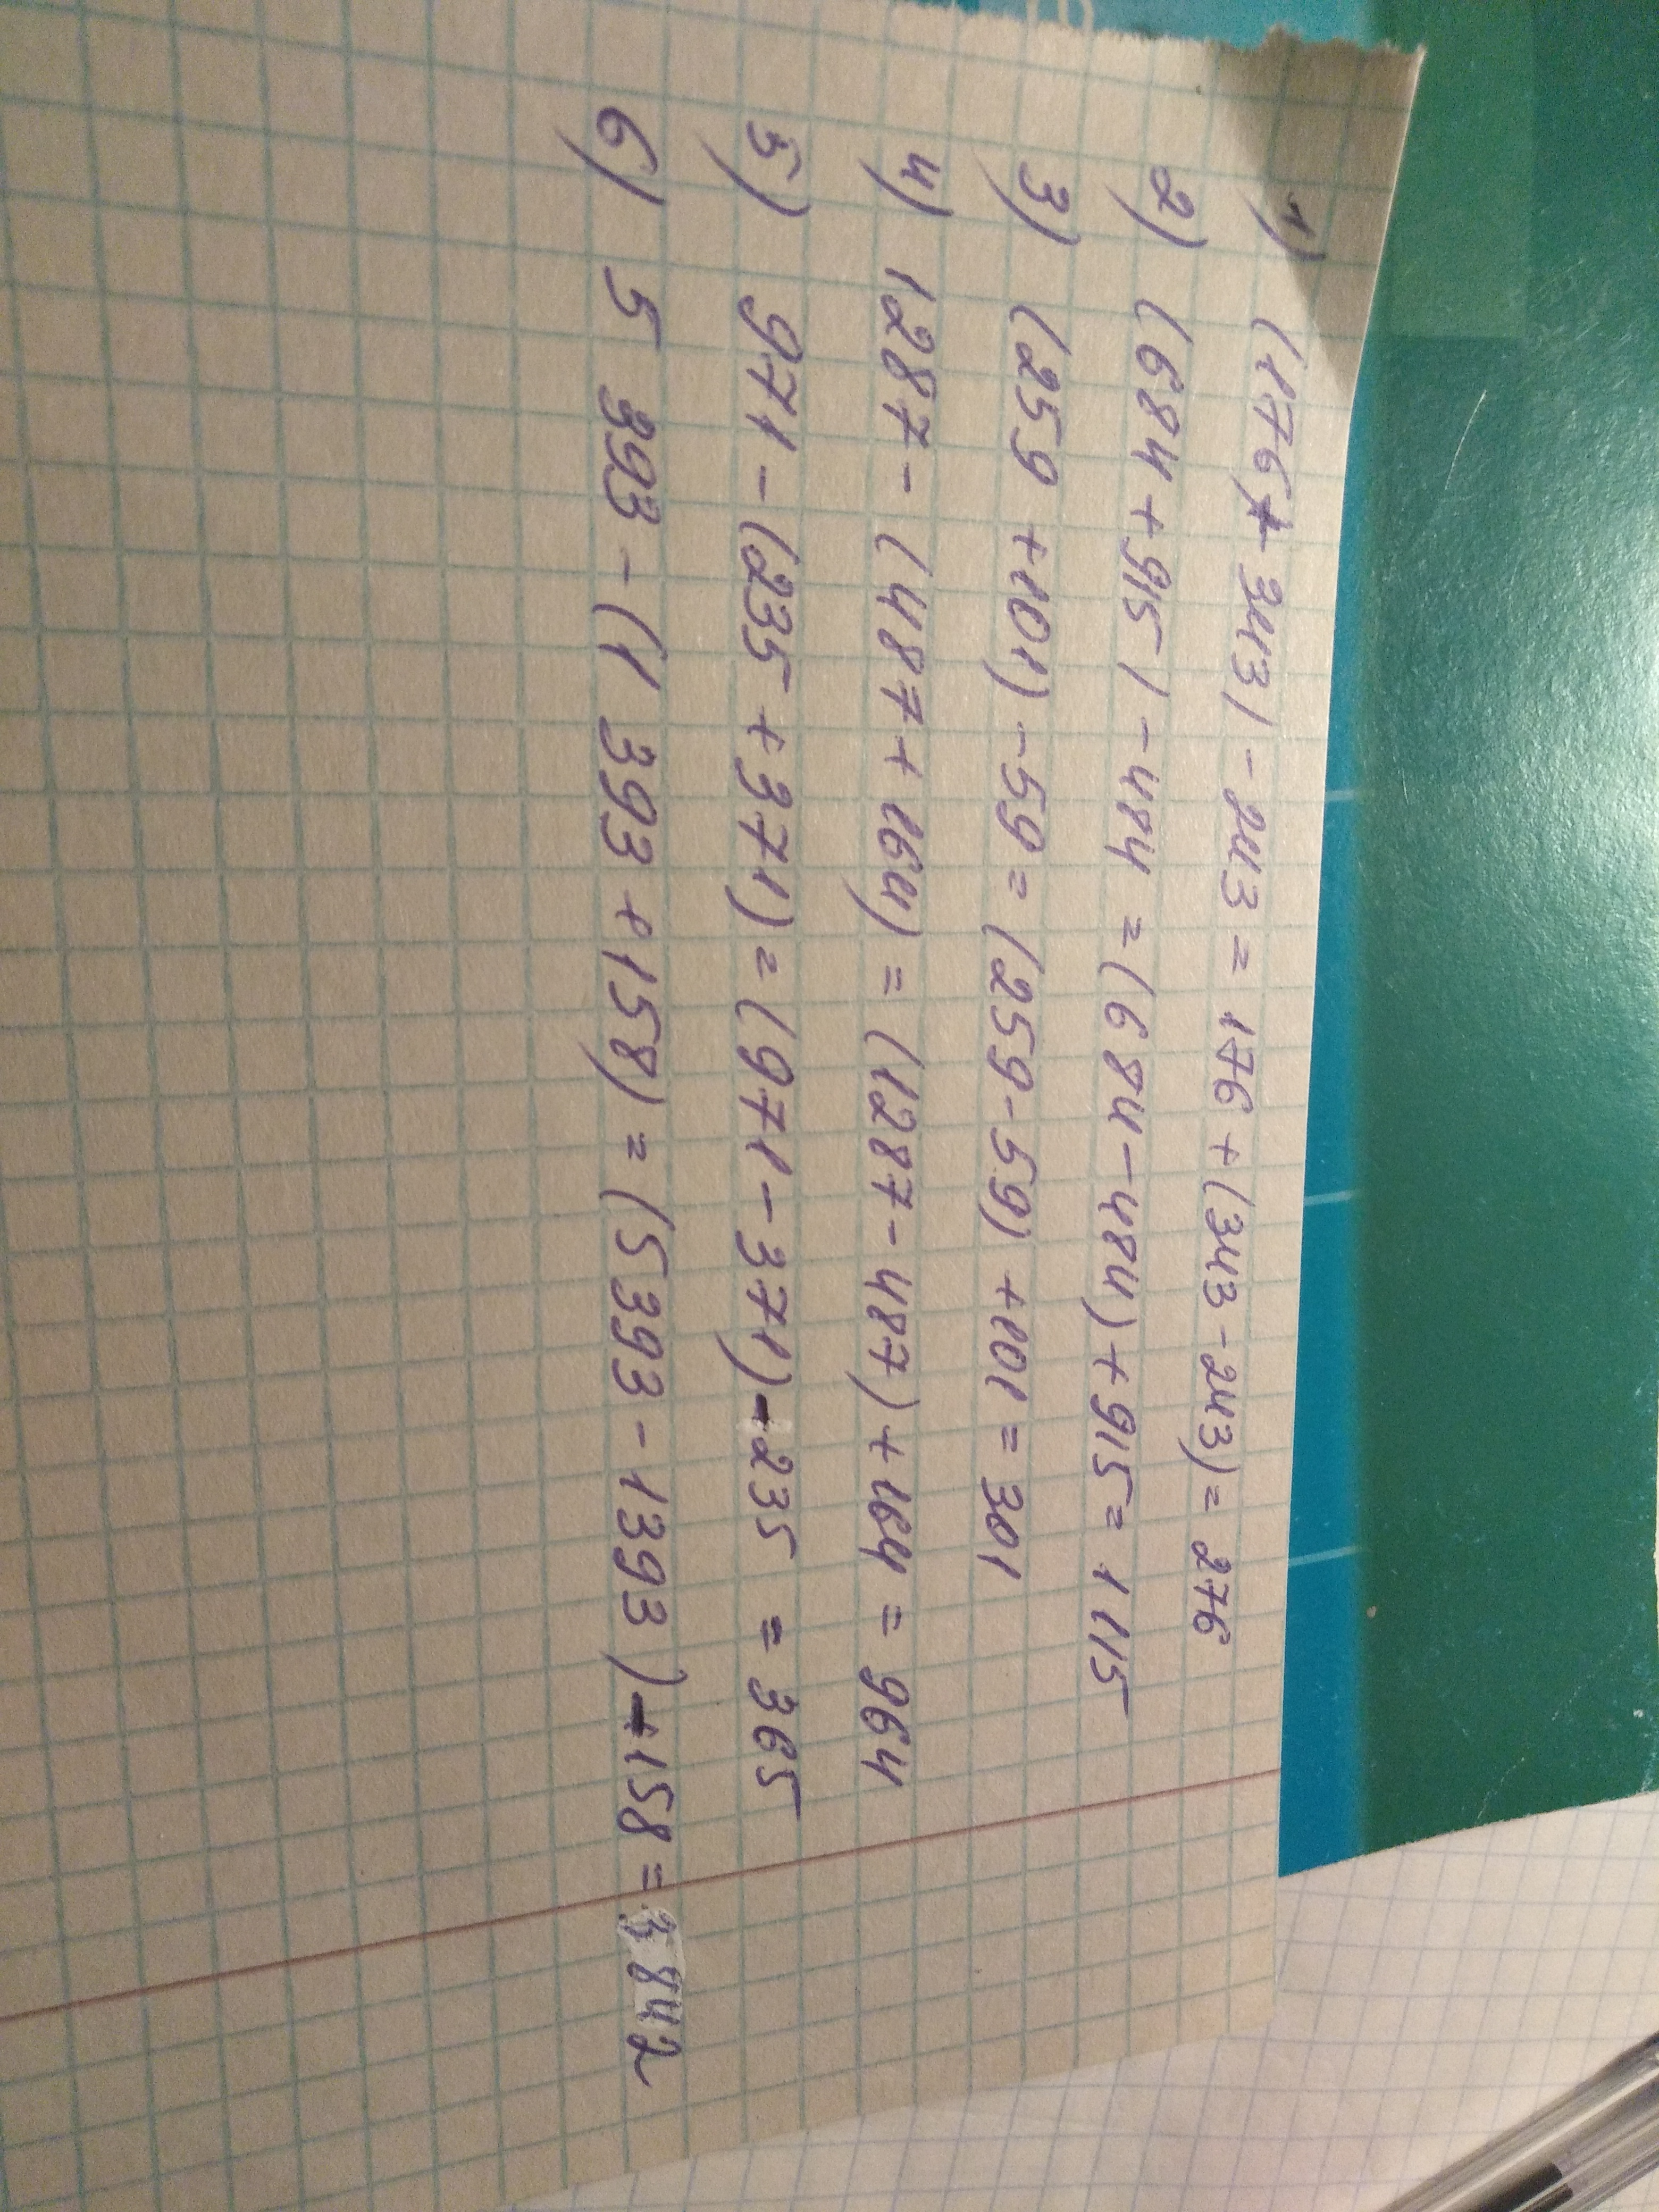 1) (176 + 343) - 243 = 176 + (343 - 243) = 276
2) (684 + 915) - 484 = (684 - 484) + 915 = 1115
3) (259 + 101) - 59 = (259 - 59) + 101 = 301
4) 1287 - (487 + 164) = (1287 - 487) + 164 = 964
5) 971 - (235 + 371) = (971 - 371) - 235 = 365
6) 5 393 - (1 393 + 158) = (5393 - 1393) - 158 = 3842